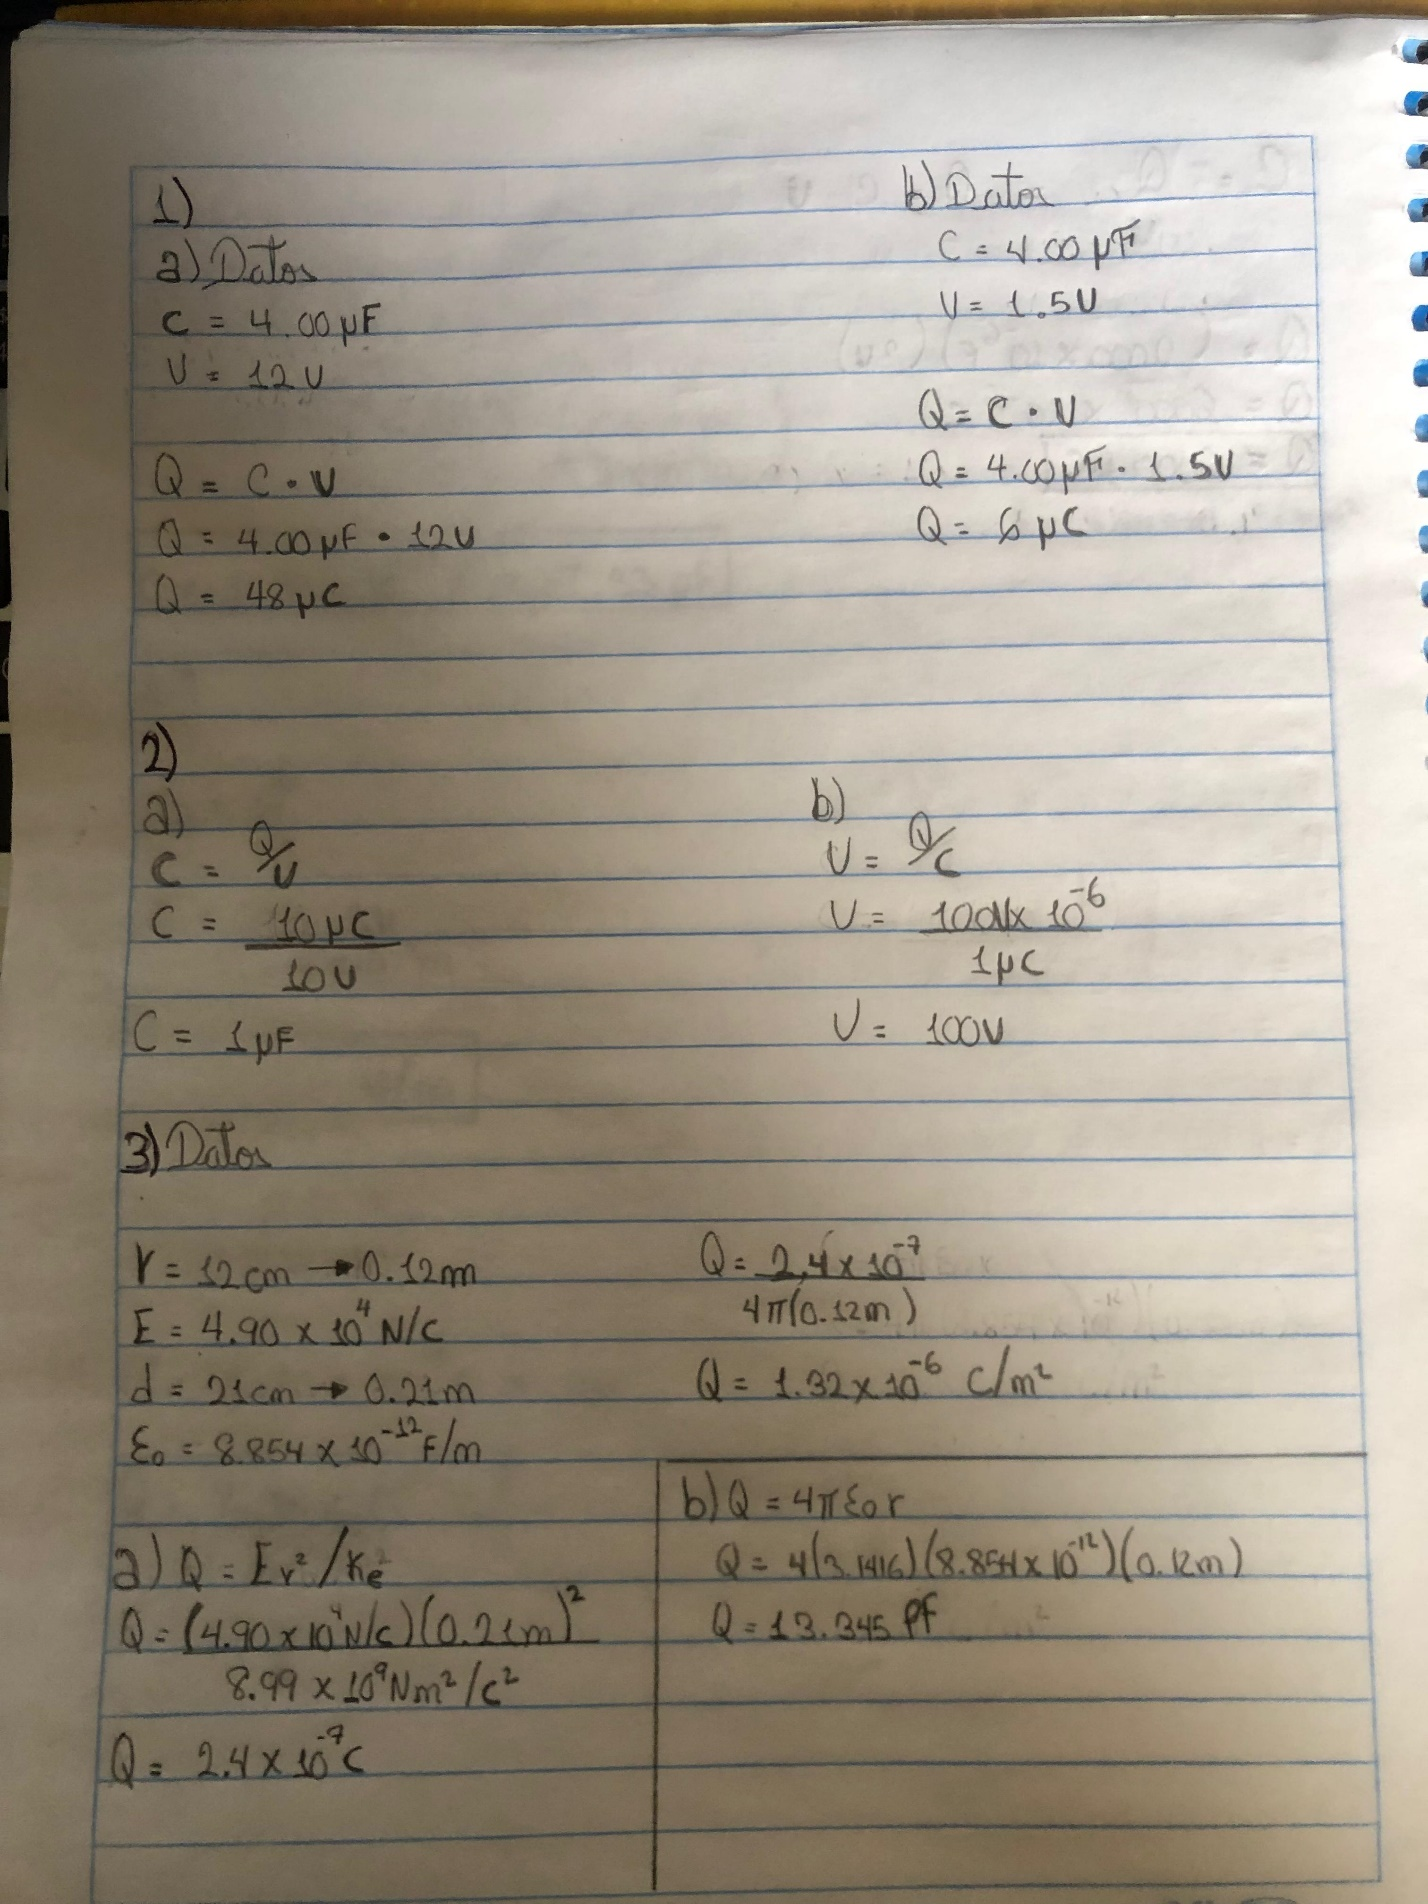 1)
a) Datos
C = 4.00 μF
V = 12 V
Q = C · V
Q = 4.00 μF · 12 V
Q = 48 μC
b) Datos
C = 4.00 μF
V = 1.5 V
Q = C · V
Q = 4.00 μF · 1.5 V
Q = 6 μC
2)
a)
C = Q/V
C = 10 μC
10 V
C = 1 μF
b)
V = Q/C
V = x 10⁻⁶
1 μC
V = 100 V
3) Datos
r = 12 cm → 0.12 m
E = 4.90 x 10⁴ N/C
d = 21 cm → 0.21 m
ε₀ = 8.854 x 10⁻¹² F/m
Q = 2.4 x 10⁻⁷
4π(0.12m)
Q = 1.32 x 10⁻⁶ C/m²
a) Q = Er²/Ke
Q = (4.90 x 10⁴ N/C)(0.21m)²
8.99 x 10⁹ Nm²/C²
Q = 2.4 x 10⁻⁷ C
b) Q = 4πε₀r
Q = 4(3.1416)(8.854 x 10⁻¹²)(0.12m)
Q = 13.345 pf